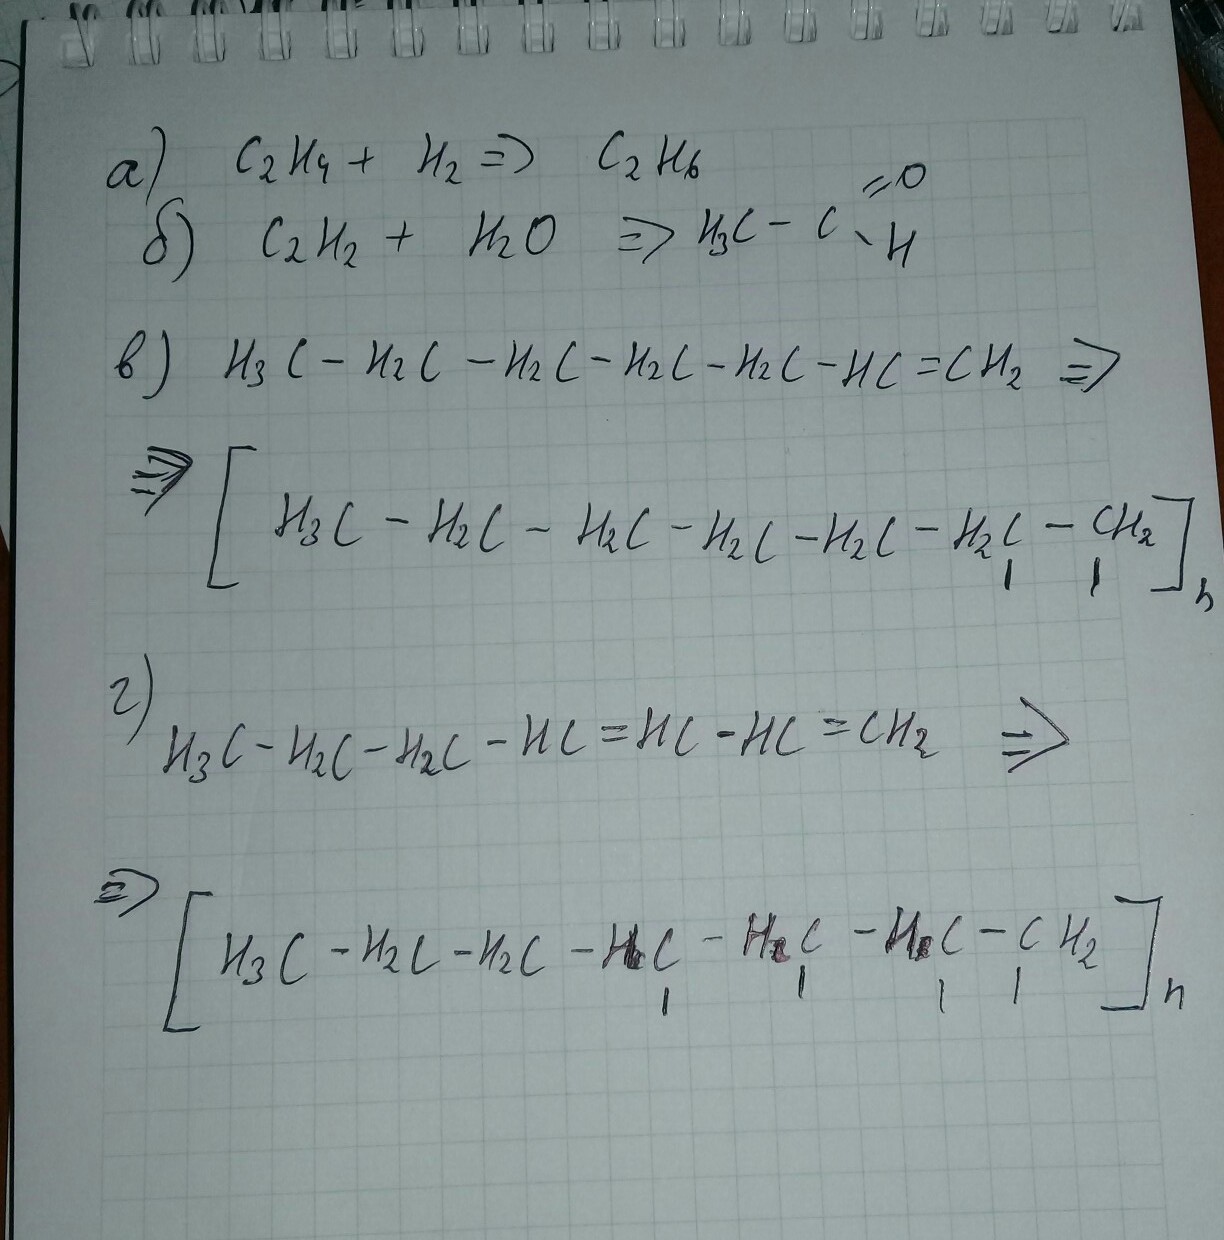 а) C₂H₄ + H₂ ⇒ C₂H₆
б) C₂H₂ + H₂O ⇒ H₃C - C =O \ H
в) H₃C - H₂C - H₂C - H₂C - H₂C - HC = CH₂ ⇒
⇒ [ H₃C - H₂C - H₂C - H₂C - H₂C - H₂C - CH₂ ]n
г)
H₃C - H₂C - H₂C - HC = HC - HC = CH₂ ⇒
⇒ [ H₃C - H₂C - H₂C - HC - HC - HC - CH₂ ]n